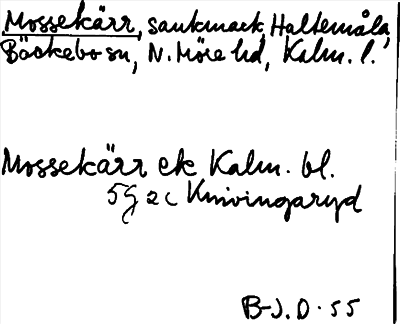 Mossekärr, sankmark, Haltemåla,
Bäckebo sn, N. Möre hd, Kalm. l.
Mossekärr ek Kalm. bl.
5G 2c Knivingaryd
B-J. D. 55